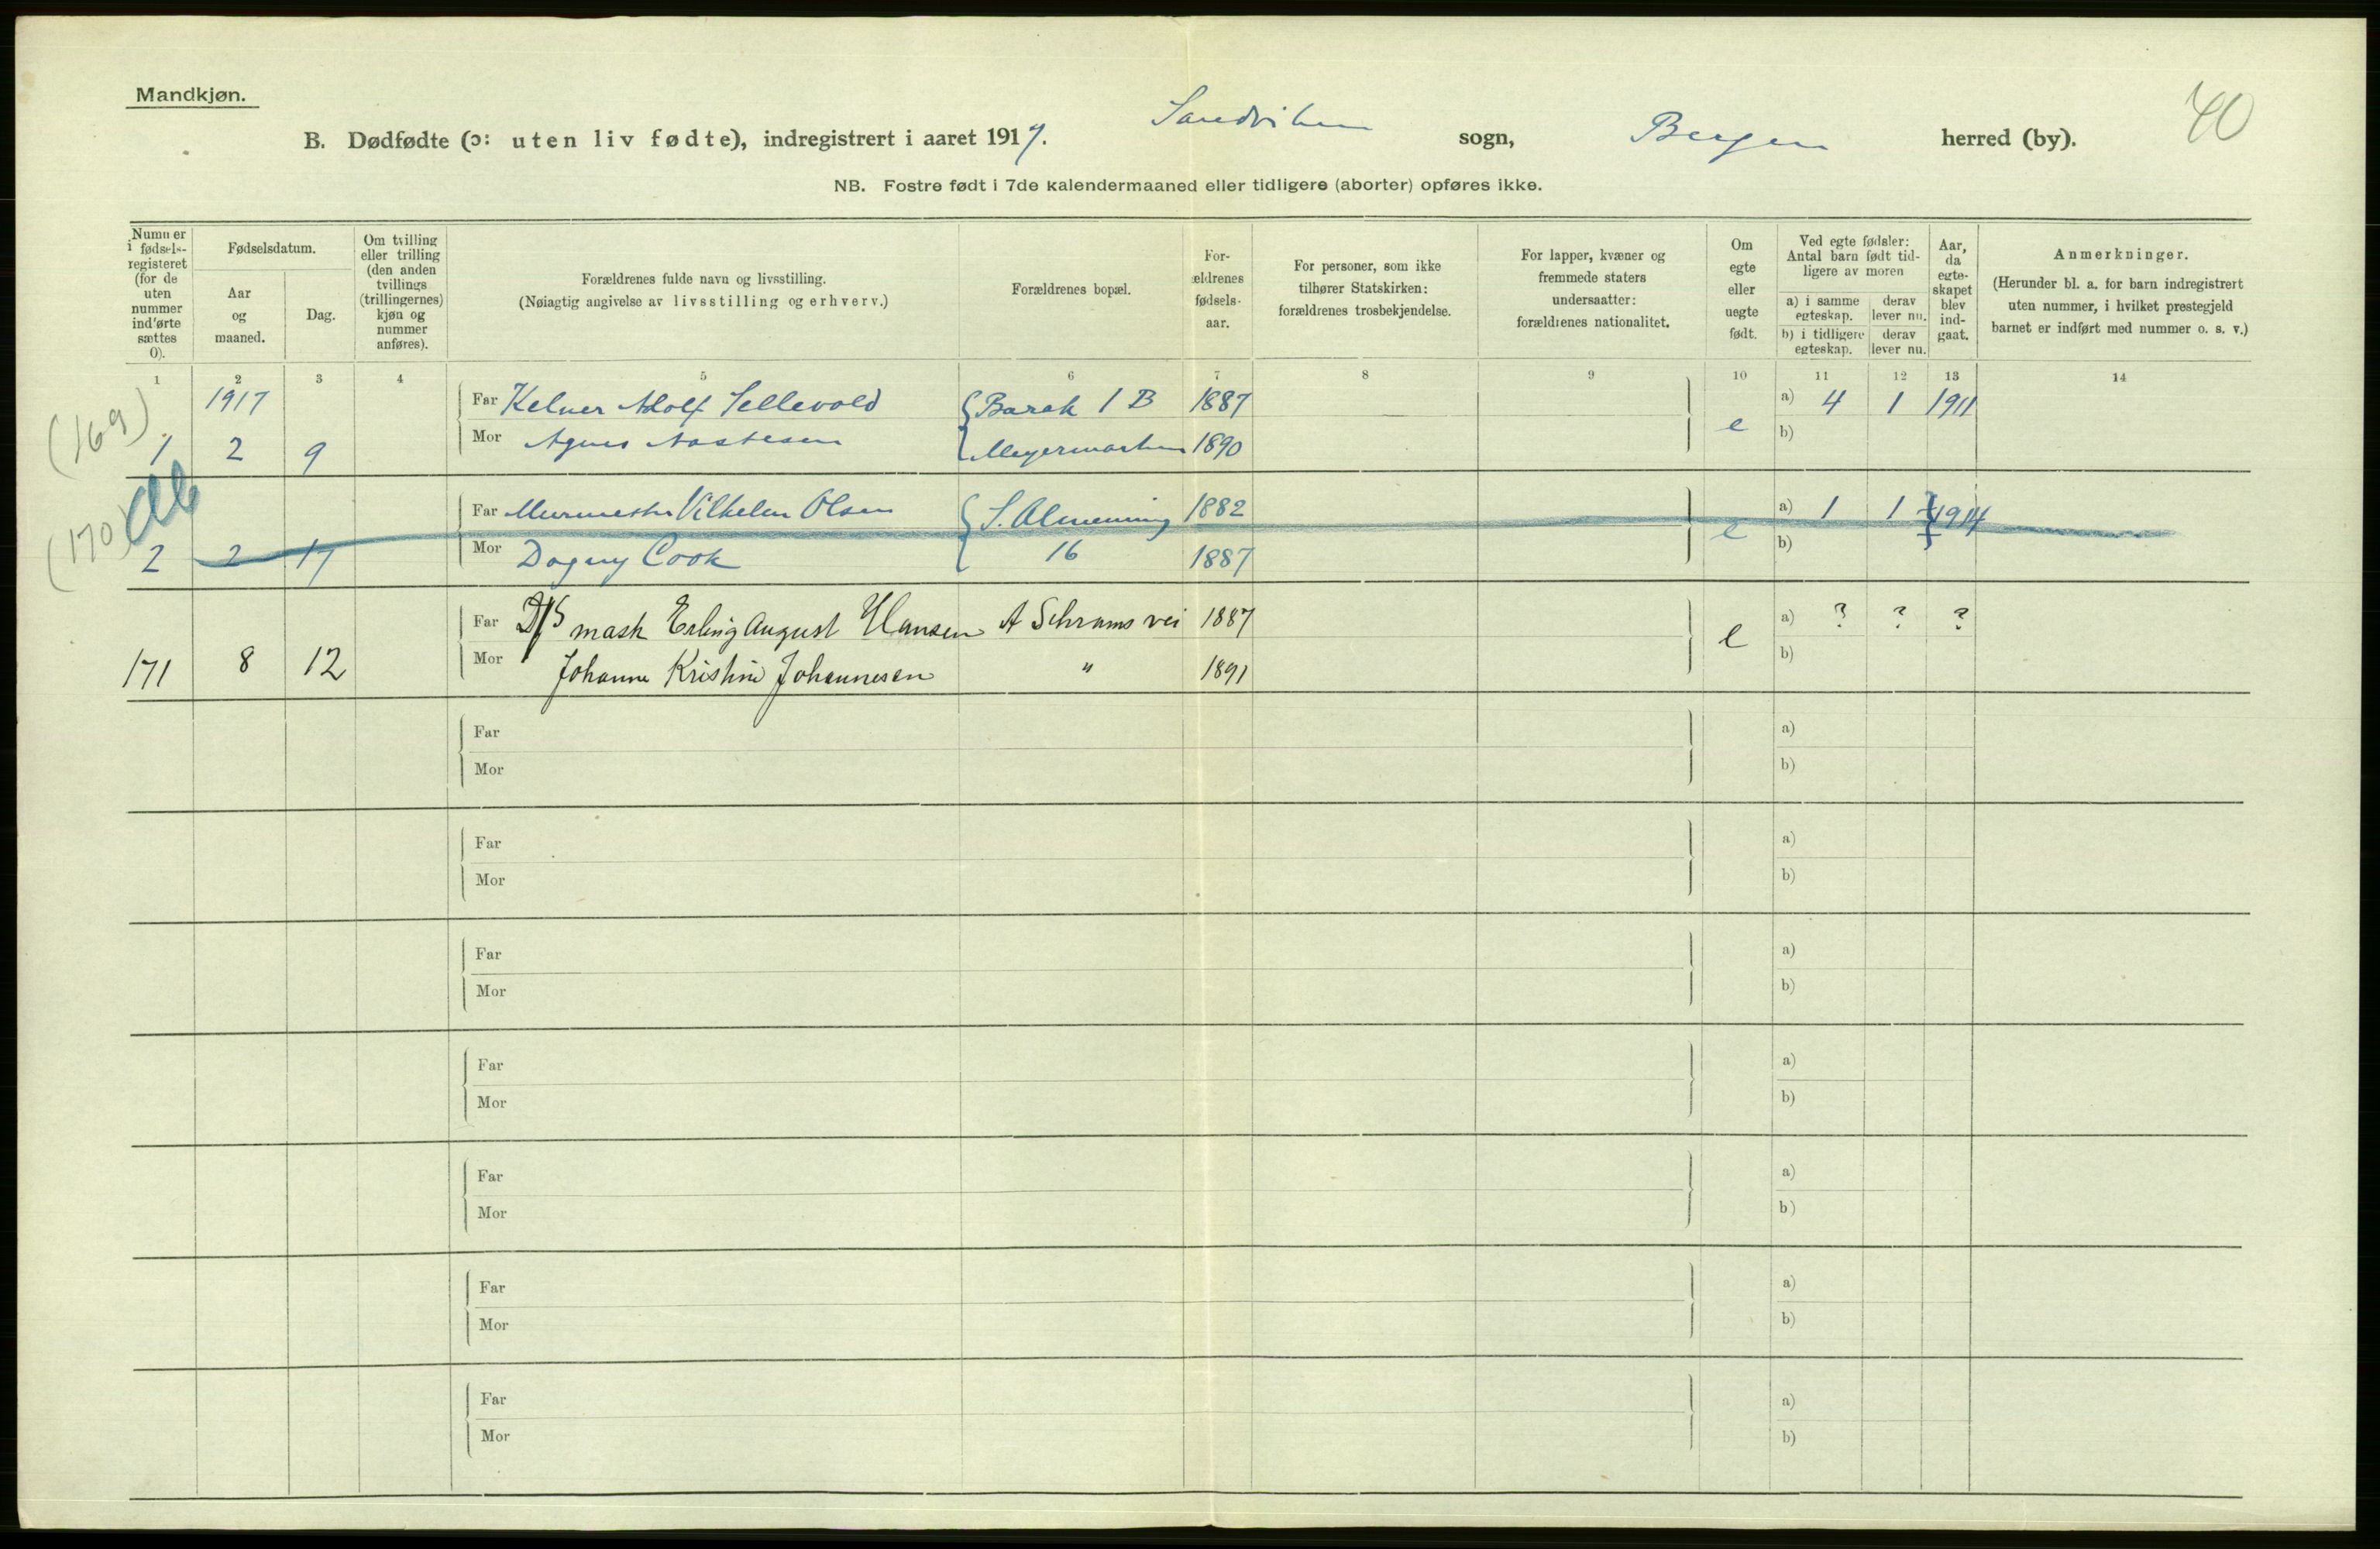 Mandkjøn.
40
B. Dødfødte (ɔ: uten liv fødte), indregistrert i aaret 1917. Sandviken sogn, Bergen herred (by).
NB. Fostre født i 7de kalendermaaned eller tidligere (aborter) opføres ikke.
Nummer i fødsels-registeret (for de uten nummer indførte sættes 0).
Fødselsdatum.
Aar og maaned.
Dag.
Om tvilling eller trilling (den anden tvillings (trillingernes) kjøn og nummer anføres).
Forældrenes fulde navn og livsstilling.
(Nøiagtig angivelse av livsstilling og erhverv.)
Forældrenes bopæl.
For-ældrenes fødsels-aar.
For personer, som ikke tilhører Statskirken: forældrenes trosbekjendelse.
For lapper, kvæner og fremmede staters undersaatter: forældrenes nationalitet.
Om egte eller uegte født.
Ved egte fødsler: Antal barn født tid-ligere av moren
a) i samme egteskap. derav lever nu.
b) i tidligere egteskap. derav lever nu.
Aar, da egte-skapet blev ind-gaat.
Anmerkninger.
(Herunder bl. a. for barn indregistrert uten nummer, i hvilket prestegjeld barnet er indført med nummer o. s. v.)
1 2 3 4 5 6 7 8 9 10 11 12 13 14
1917 Far Kelner Adolf Sellevold Barak 1 B 1887 a) 4 1 1911
(169) 1 2 9 Mor Agnes Meyermarken 1890 e b)
Far Murmester Vilhelm Olsen S. Almenning 1882 a) 1 1 1914
(170) 2 2 17 Mor Dagny Cook 16 1887 e b)
Far D/S mask Erling August Hansen A Schrams vei 1887 a) ? ? ?
171 8 12 Mor Johanne Kristine Johannesen " 1891 e b)
Far a)
Mor b)
Far a)
Mor b)
Far a)
Mor b)
Far a)
Mor b)
Far a)
Mor b)
Far a)
Mor b)
Far a)
Mor b)